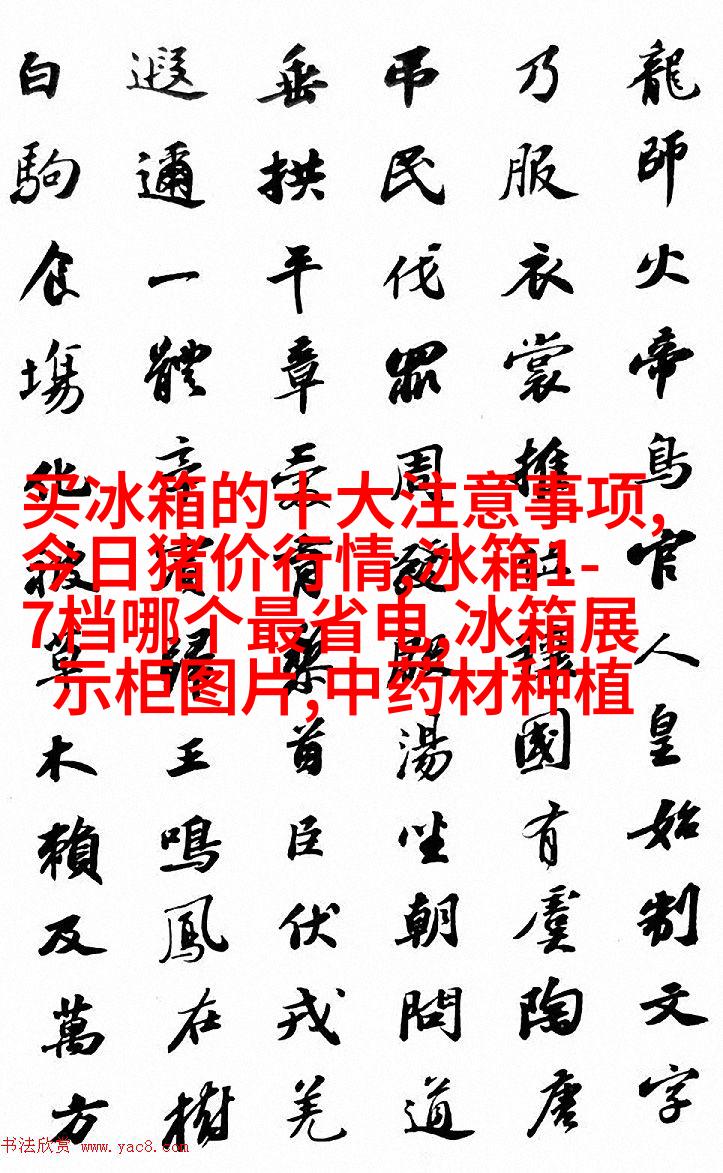 龍師火帝鳥官人皇始制文字
乃服衣裳推位讓國有虞陶唐
吊民伐罪周發殷湯坐朝問道
垂拱平章愛育黎首臣伏戎羌
遐邇一體率賓歸王鳴鳳在樹
白駒食場化被草木賴及萬方
买冰箱的十大注意事项,
今日猪价行情,冰箱1-
7档哪个最省电,冰箱展
示柜图片,中药材种植
书法欣赏 www.yac8.com